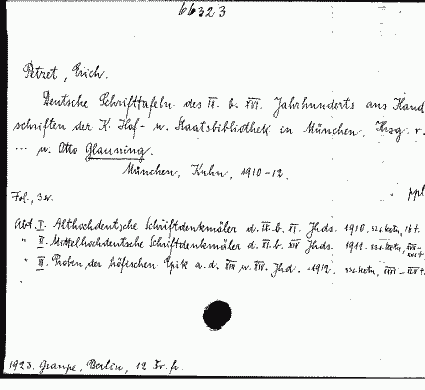 66323
Petzet, Erich.
Deutsche Schrifttafeln des IX. b. XVI. Jahrhunderts aus Hand
schriften der K. Hof- u. Staatsbibliothek in München. Hrsg. v.
... u. Otto Glauning.
München, Kuhn, 1910-12.
ppl
Fol., 3 v.
Abt. I. Althochdeutsche Schriftdenkmäler d. IX. b. XI. Jhds. 1910.
" II. Mittelhochdeutsche Schriftdenkmäler d. XI. b. XIV Jhds. 1911.
" III. Proben der höfischen Epik a. d. XIII u. XIV. Jhd. 1912.
1923. Graupe, Berlin, 12 Fr. fr.